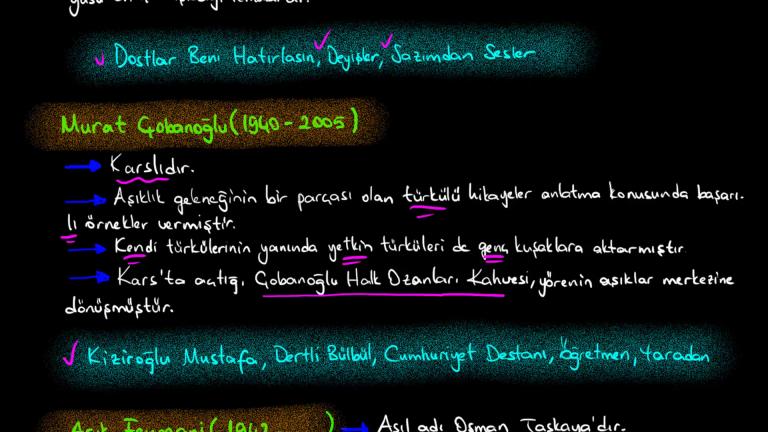 Dostlar Beni Hatırlasın, Deyişler, Sazımdan Sesler
Murat Çobanoğlu (1940-2005)
Karslıdır.
Aşıklık geleneğinin bir parçası olan türkülü hikayeler anlatma konusunda başarı-
lı örnekler vermiştir.
Kendi türkülerinin yanında yetkin türküleri de genç kuşaklara aktarmıştır
Kars'ta açtığı Çobanoğlu Halk Ozanları Kahvesi, yörenin aşıklar merkezine
dönüşmüştür.
Kiziroğlu Mustafa, Dertli Bülbül, Cumhuriyet Destanı, Öğretmen, Yaradan
Asıl adı Osman Taşkaya'dır.